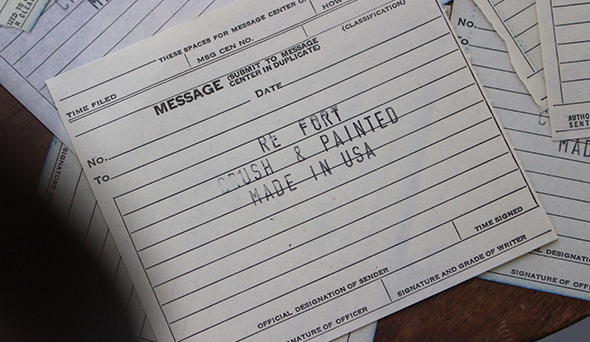 THESE SPACES FOR MESSAGE CENTER
TIME FILED
MSG CEN NO.
HOW
(CLASSIFICATION)
MESSAGE (SUBMIT TO MESSAGE
CENTER IN DUPLICATE)
DATE
No.
To
RE FORT
CRUSH & PAINTED
MADE IN USA
TIME SIGNED
OFFICIAL DESIGNATION OF SENDER
SIGNATURE AND GRADE OF WRITER
SIGNATURE OF OFFICER
No.
To
SIGNATURE
SIGNATURE AND
SIGNATURE OF OFFICER
MAD